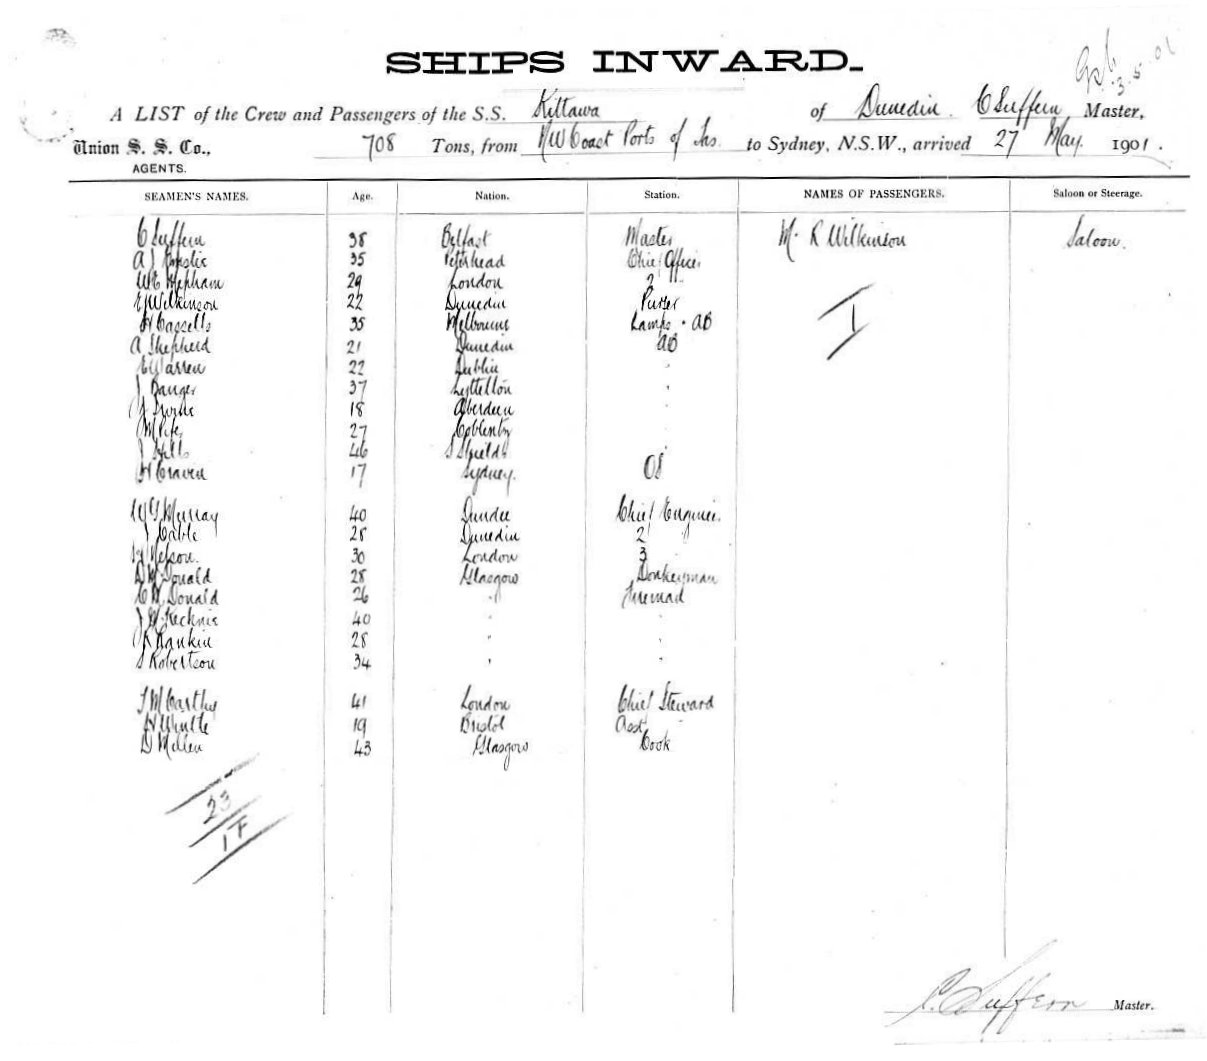 SHIPS INWARD.
3.5.01
A LIST of the Crew and Passengers of the S.S. Kittawa of Dunedin C Suffern Master,
Union S. S. Co., 708 Tons, from NW Coast Ports of Tas. to Sydney, N.S.W., arrived 27 May. 1901.
AGENTS.
SEAMEN'S NAMES. Age. Nation. Station. NAMES OF PASSENGERS. Saloon or Steerage.
C Suffern 38 Belfast Master Mr R Wilkinson Saloon.
A J 35 Peterhead Chief Officer
29 London 2 "
E J Wilkinson 22 Dunedin Purser
H Cassells 35 Melbourne Lamps · AB
I
A Shepherd 21 Dunedin AB
E Warren 22 Dublin "
J Banger 37 Lyttelton "
18 Aberdeen
M 27
J 46 S Shields
H Craven 17 Sydney. OS
W G Murray 40 Dundee Chief Engineer.
J Cable 28 Dunedin 2 "
Nelson. 30 London 3
D McDonald 28 Glasgow Donkeyman
C McDonald 26 " Fireman
J McKechnie 40 " "
J R Rankin 28 " "
S Robertson 34 " "
J McCarthy 41 London Chief Steward
H Wintle 19 Bristol Asst "
D Millen 43 Glasgow Cook
23
1 F
C. Suffern Master.